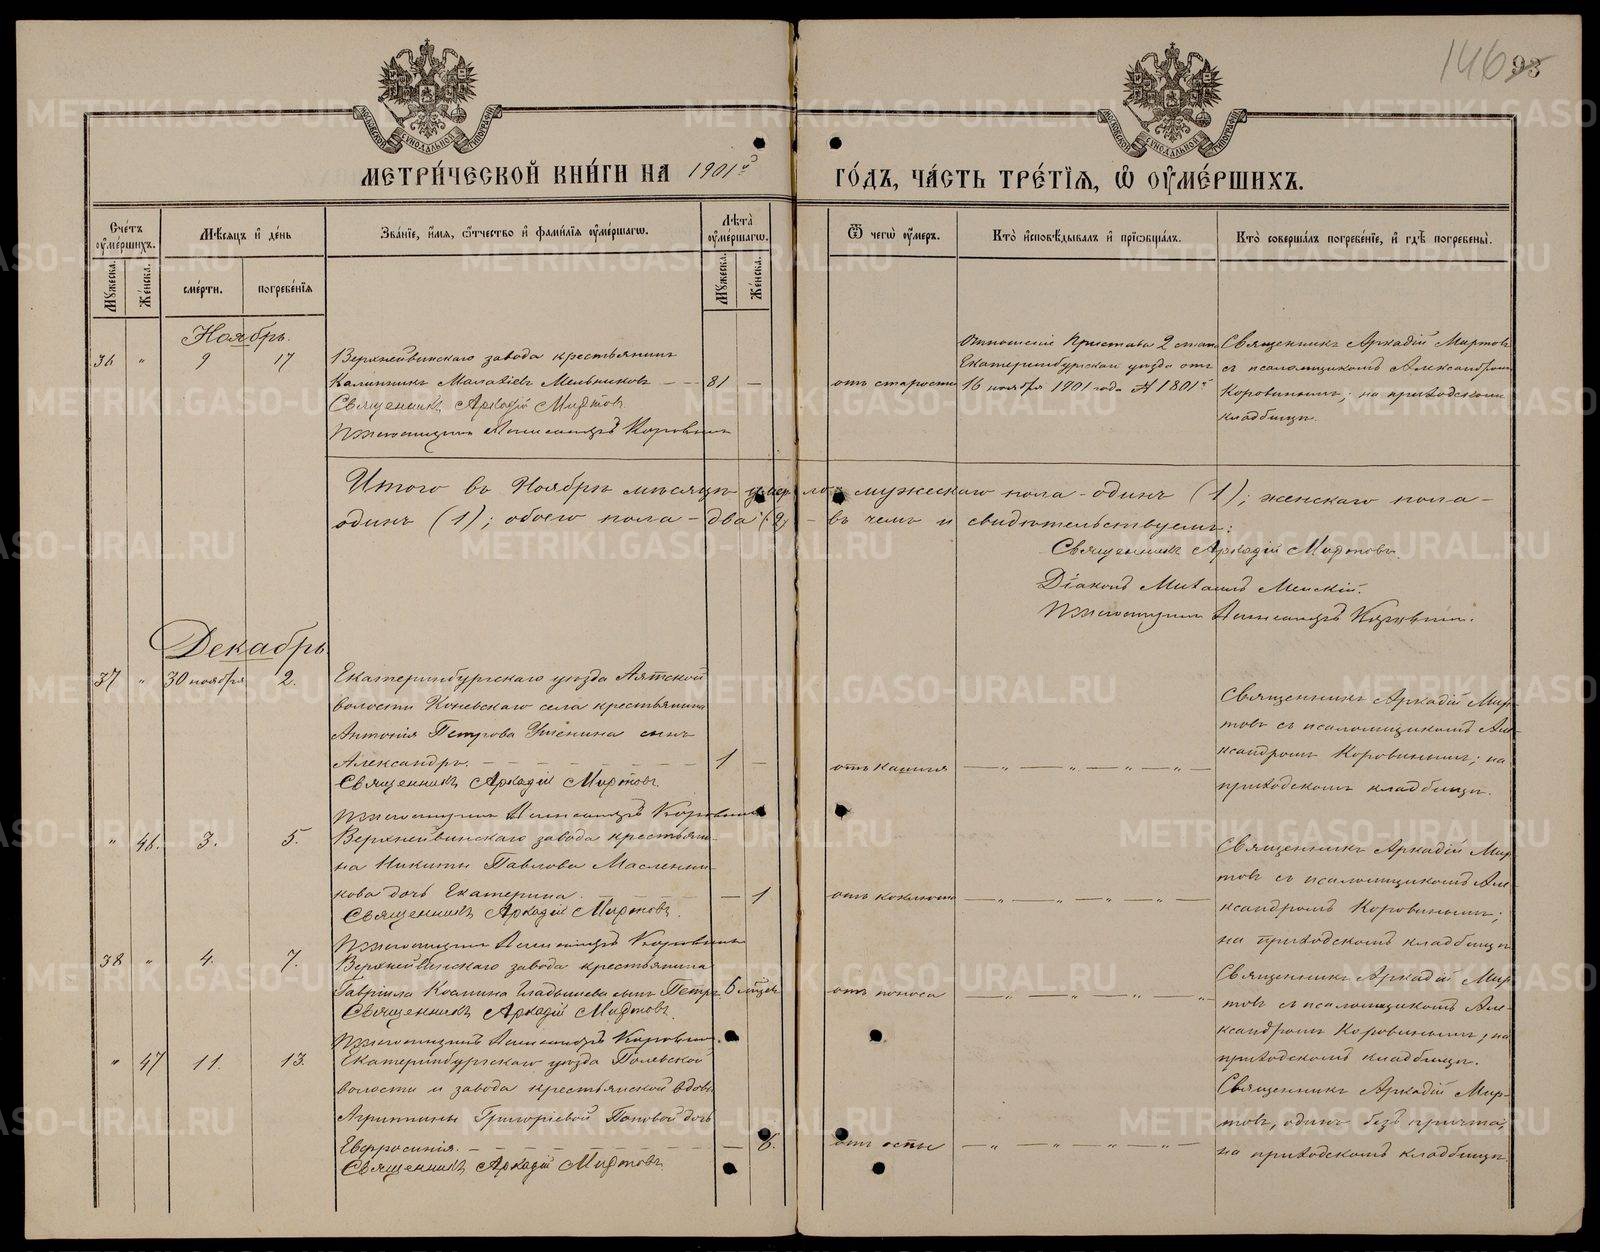 146 93
МЕТРИ́ЧЕСКОЙ КНИ́ГИ НА 1901й ГО́ДЪ, ЧА́СТЬ ТРЕ́ТІѦ, Ѡ ОУМЕ́РШИХЪ.
Сче́тъ оуме́ршихъ.
Мужеска.
Женска.
Мѣсяцъ и де́нь
сме́рти.
погребе́нія
Зва́ніе, и́мя, ѻ҆́тчество и фами́лія оуме́ршагѡ.
Лѣта̀ оуме́ршагѡ.
Мужеска.
Женска.
Ѿ чегѡ̀ оу́меръ.
Кто̀ исповѣ́дывалъ и пріѡбща́лъ.
Кто̀ соверша́лъ погребе́ніе, и гдѣ̀ погребены̀.
Ноябрь.
36 " 9 17
Верхнейвинскаго завода крестьянинъ
Калинникъ Малахіевъ Мельниковъ — — 81 —
Священникъ Аркадій Миртовъ
Псаломщикъ Александръ Коровинъ
отъ старости
Отношеніе Пристава 2 стана
Екатеринбургскаго уѣзда отъ
16 ноября 1901 года № 1801й
Священникъ Аркадій Миртовъ
съ псаломщикомъ Александромъ
Коровинымъ; на приходскомъ
кладбищѣ.
Итого въ Ноябрѣ мѣсяцѣ умерло: мужескаго пола - одинъ (1); женскаго пола -
одинъ (1); обоего пола - два (2) - въ чемъ и свидѣтельствуемъ:
Священникъ Аркадій Миртовъ.
Діаконъ Михаилъ
Псаломщикъ Александръ Коровинъ.
Декабрь.
37 " 30 ноября 2.
Екатеринбургскаго уѣзда Аятской
волости Коневскаго села крестьянина
Антонія Петрова сынъ
Александръ. — — — — — — 1 —
Священникъ Аркадій Миртовъ.
Псаломщикъ Александръ Коровинъ
отъ кашля — " — " — " — " —
Священникъ Аркадій Мир-
товъ съ псаломщикомъ Але-
ксандромъ Коровинымъ; на
приходскомъ кладбищѣ.
" 46. 3. 5.
Верхнейвинскаго завода крестьяни-
на Никиты Павлова Масленни-
кова дочь Екатерина. — — — — 1
Священникъ Аркадій Миртовъ.
Псаломщикъ Александръ Коровинъ
отъ коклюша — " — " — " — " —
Священникъ Аркадій Мир-
товъ съ псаломщикомъ Але-
ксандромъ Коровинымъ;
на приходскомъ кладбищѣ
38 " 4. 7.
Верхнейвинскаго завода крестьянина
Гавріила Козмина Гладышева сынъ Петръ 6 мѣсяц.
Священникъ Аркадій Миртовъ.
Псаломщикъ Александръ Коровинъ.
отъ поноса — " — " — " — "
Священникъ Аркадій Мир-
товъ съ псаломщикомъ Але-
ксандромъ Коровинымъ, на
приходскомъ кладбищѣ.
" 47 11. 13.
Екатеринбургскаго уѣзда Полевской
волости и завода крестьянской вдовы
Агрипины Григоріевой Поповой дочь
Евфросинія. — — — — — 6.
Священникъ Аркадій Миртовъ
отъ оспы — " — " — " — " —
Священникъ Аркадій Мир-
товъ, одинъ безъ причта,
на приходскомъ кладбищѣ.